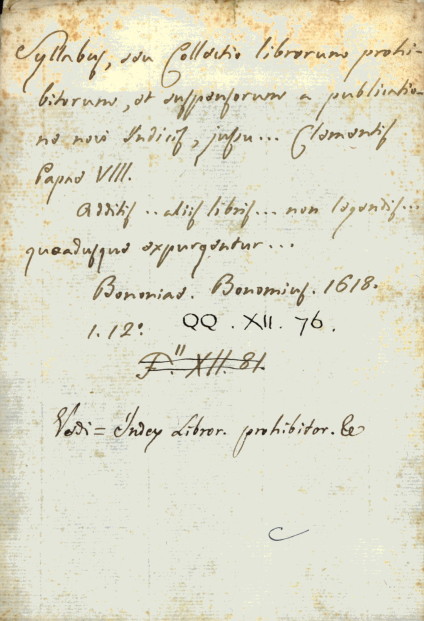 Syllabus, seu Collectio librorum prohi-
bitorum, et suspensorum a publicatio-
ne novi Indicis, jussu... Clementis
Papae VIII.
Additis .. aliis libris... non legendis...
quoadusque expurgentur...
Bononiae. Bonomius. 1618.
1. 12º. QQ . XII. 76.
F." XII. 81.
Vedi = Index Libror. prohibitor. &c